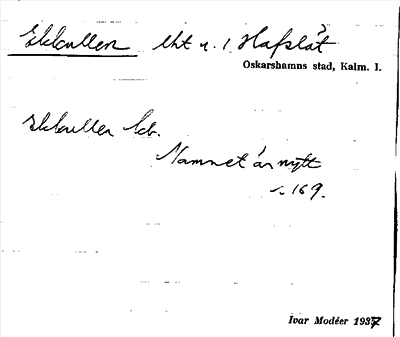 Ekkullen lht n. 1 Hafslåt
Oskarshamns stad, Kalm. l.
Ekkullen
Namnet är nytt
s. 169.
Ivar Modéer 1937